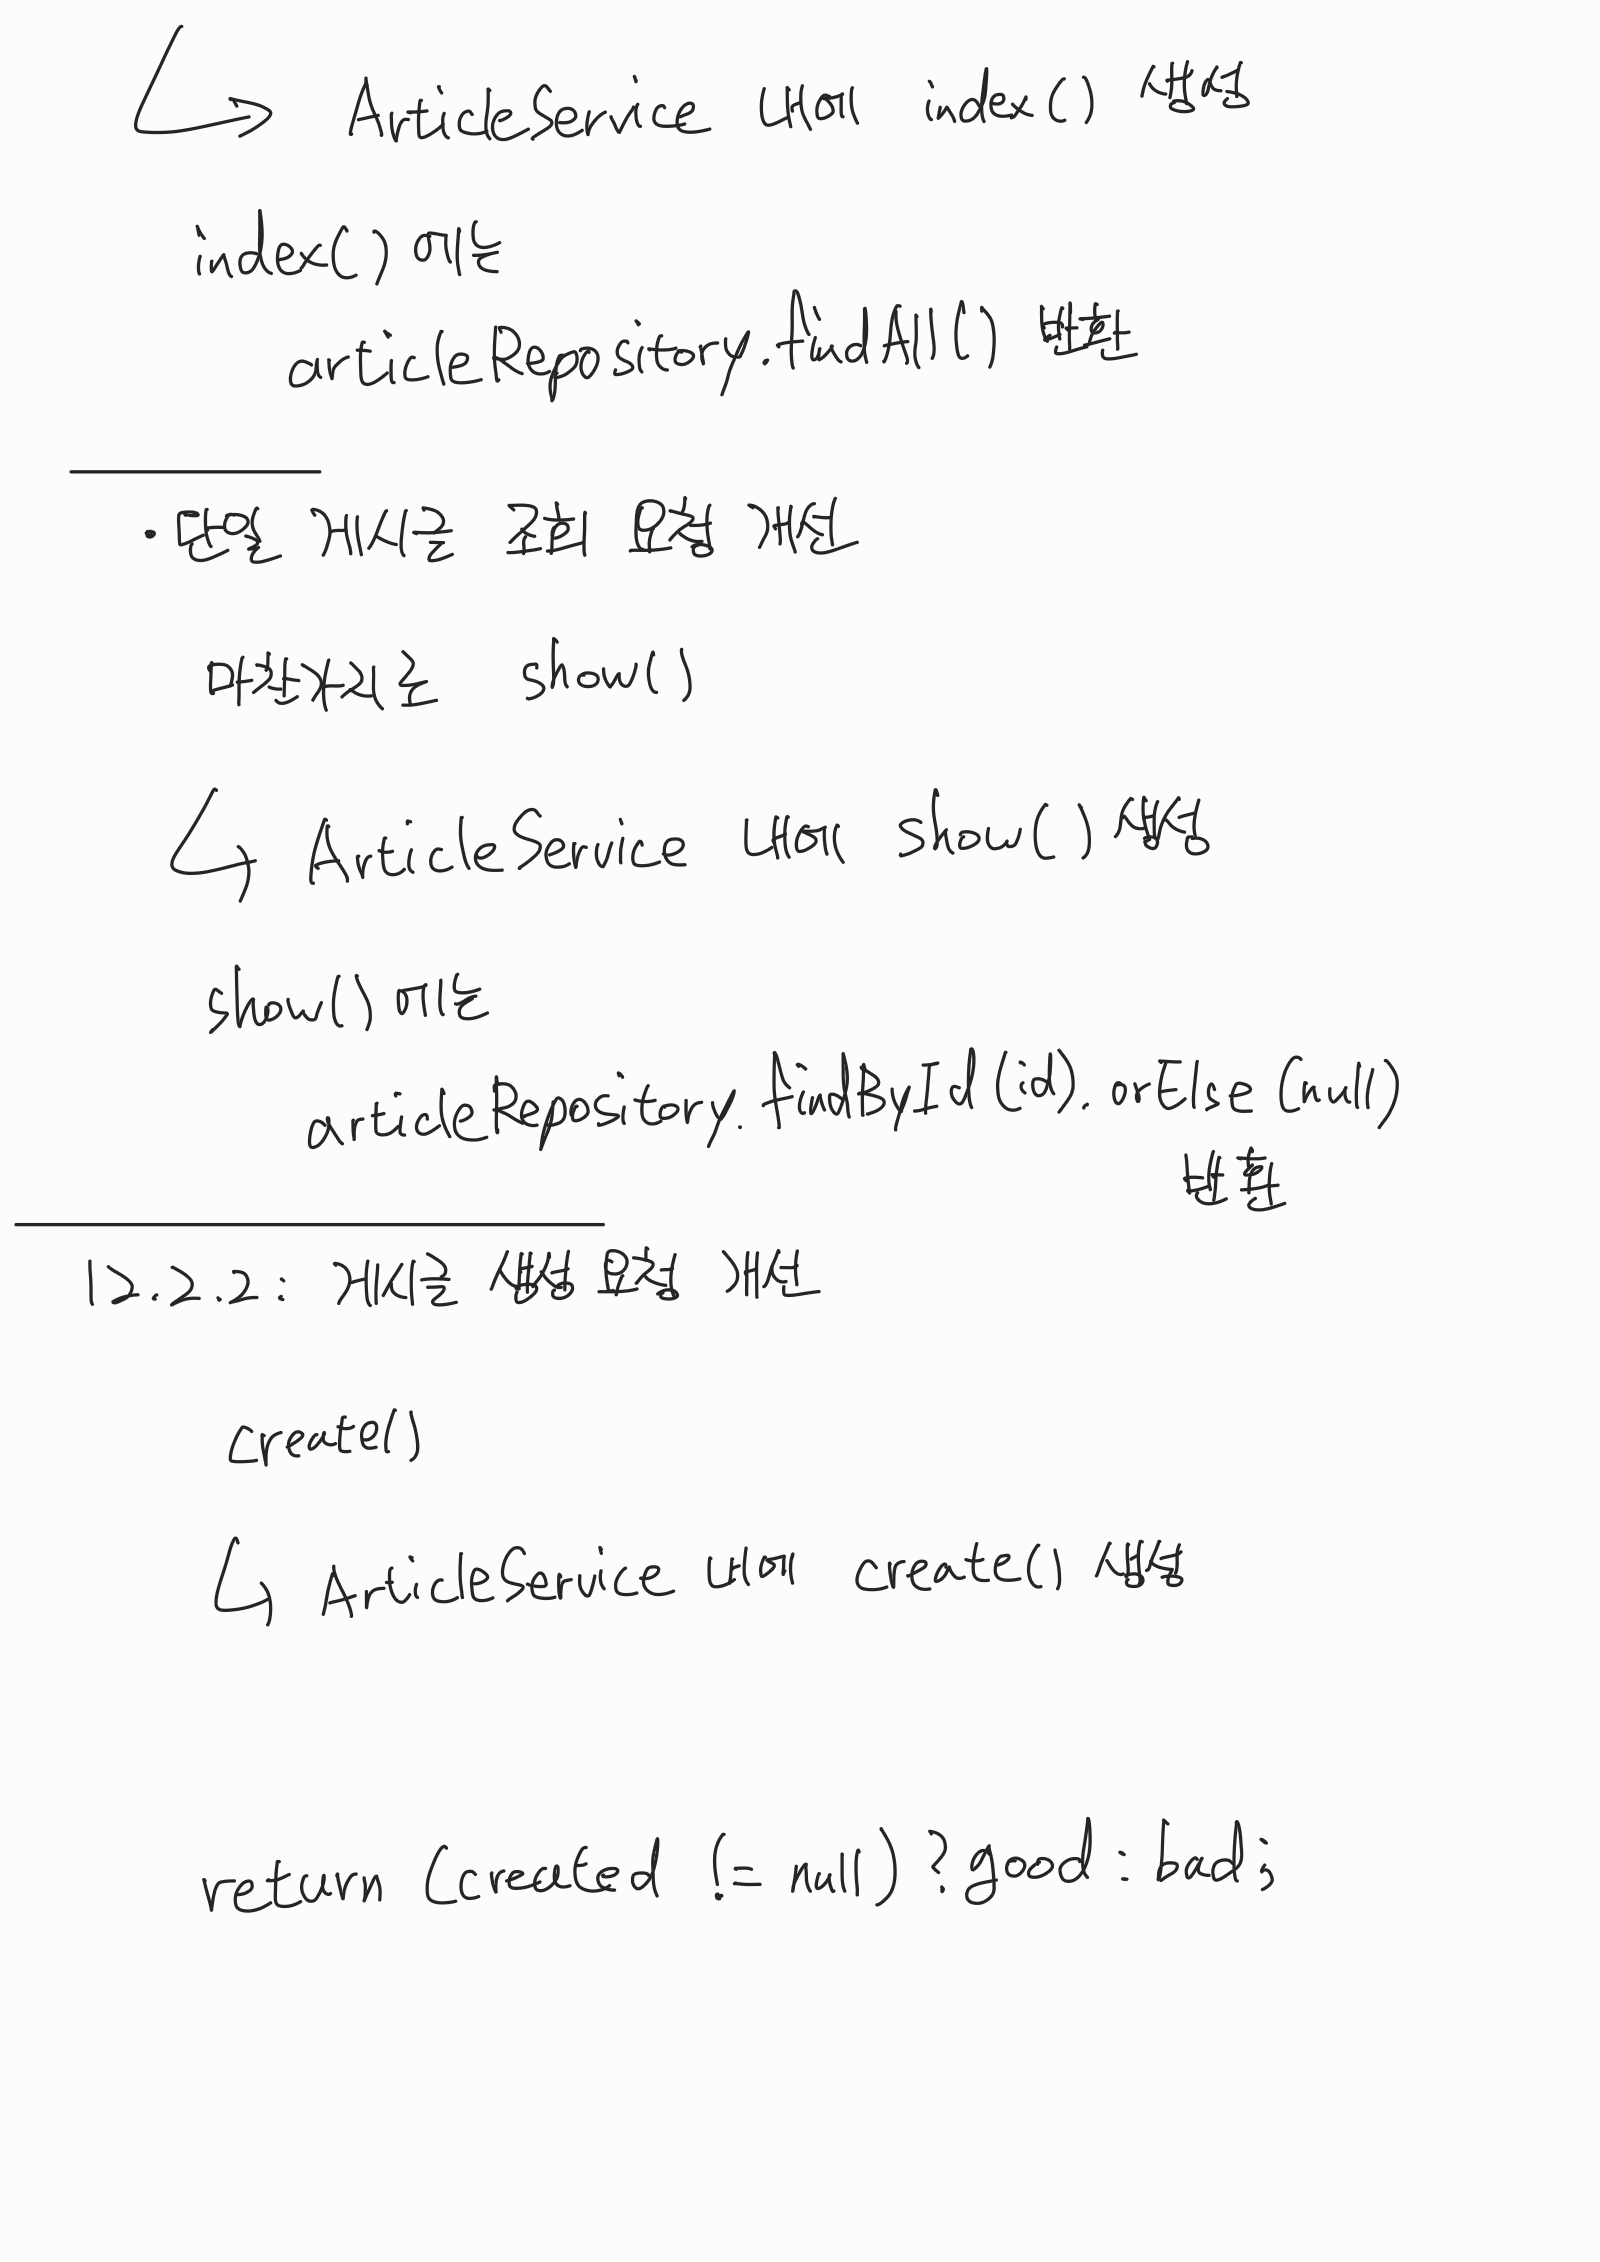 ArticleService 내에 index() 생성
index() 에는
articleRepository.findAll() 반환
· 단일 게시글 조회 요청 개선
마찬가지로 show()
ArticleService 내에 show() 생성
show() 에는
articleRepository.findById(id).orElse(null)
반환
12.2.2: 게시글 생성 요청 개선
create()
ArticleService 내에 create() 생성
return (created != null) ? good : bad;